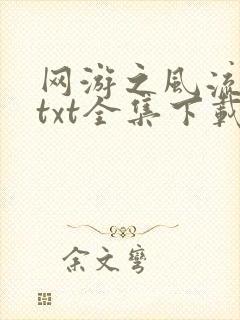 网游之风流
txt全集下载
余文弯